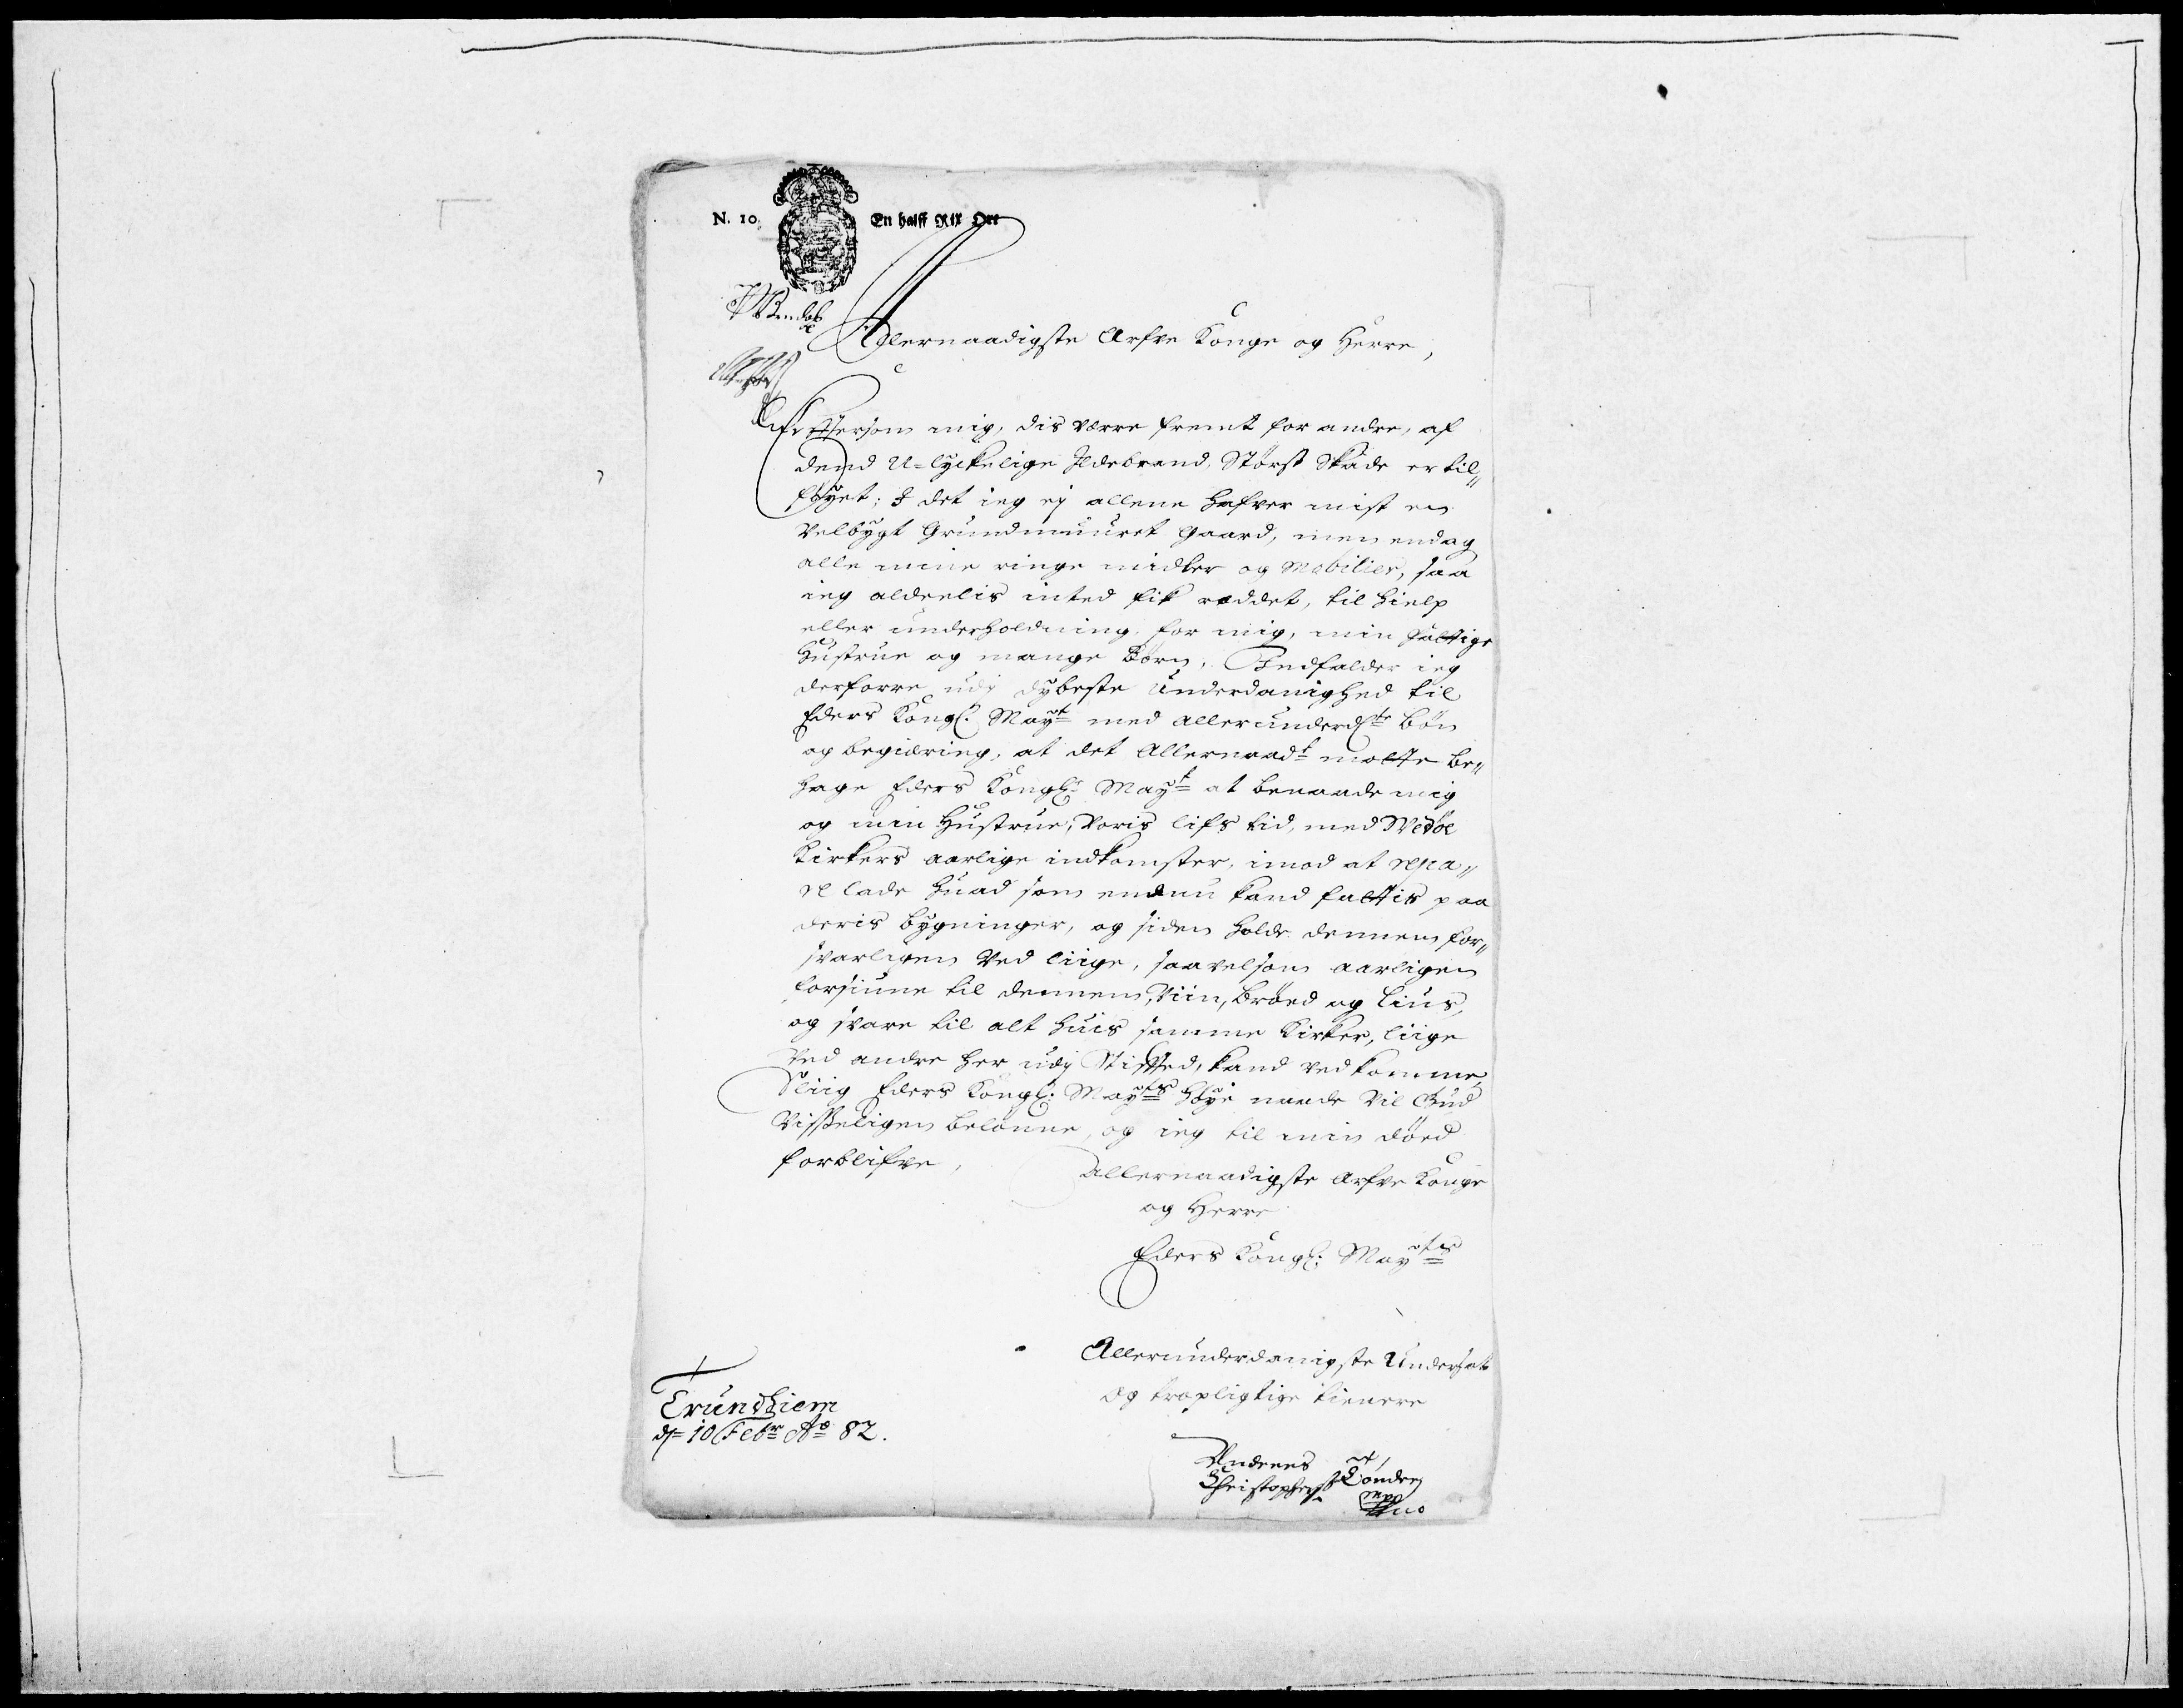 N. 10.
En halff Rix Ort
Allernaadigste Arfve Konge og Herre,
Effttersom mig, dis verre fremt for andre, af
dend U-lyckelige Ildebrand, Störst Skade er til„
föyet; I det ieg ej allene hafver mist en
velbygt Grundmuuret Gaard, men endog
alle mine ringe midler og Mobilier, saa
ieg aldeelis inted fik reddet, til hielp
eller underholdning for mig, min
Hustrue og mange Börn. Indfalder ieg
derforre udj dybeste Underdanighed til
Eders Kongl: Mayt med allerunderdste Bön
og begiæring, at det Allernaadt motte be„
hage Eders Kongl: Mayt at benaade mig
og min Hustrue, voris lifs tid, med Medöe
Kirkers aarlige indkomster, imod at repa„
re lade huad som endnu kand fattis paa
deris bygninger, og siden holde dennem for„
svarligen ved liige, saavelsom aarligen
forsiune til dennem, Viin, bröed og Lius,
og svare til alt huis samme Kirker, liige
ved andre her udj Stifted, kand vedkomme,
Sliig Eders Kongl: Mayts höye naade vil Gud
visseligen belönne, og ieg til min döed
forblifve,
Allernaadigste Arfve Konge
og Herre
Eders Kongl: Mayts
Allerunderdanigste Undersaat
og tropligtige tienere
Trundhiem
d 10 Febr Ao 82.
Anders
Christophers Tönder
mpp